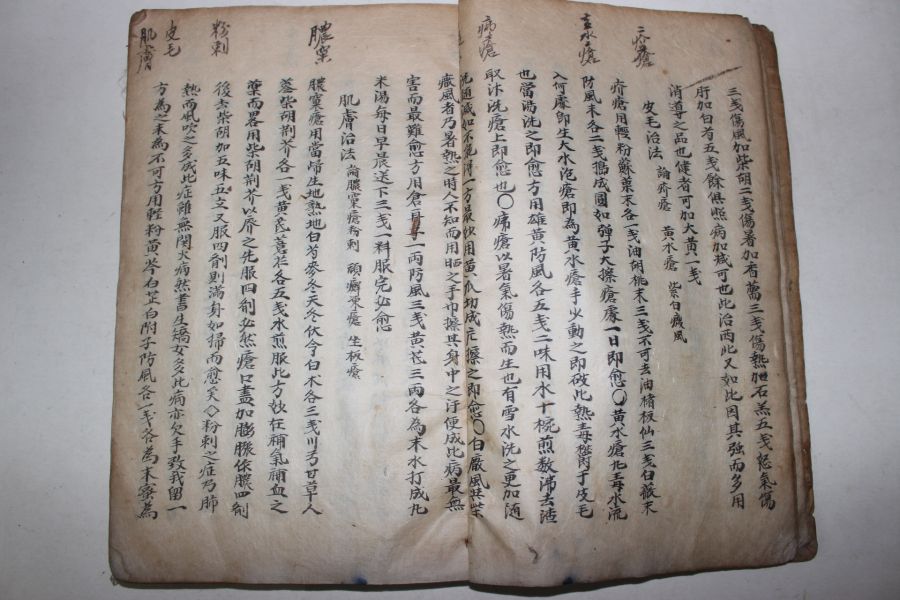 疥瘡
黃水瘡
痱瘡
三戔傷風加柴胡二戔傷暑加香薷三戔傷熱加石羔五戔怒氣傷
肝加白芍五戔餘俱照病加減可也此治西此又如此因其強而多用
消導之品也健者可加大黃一戔
皮毛治法 論疥瘡 黃水瘡 紫白癜風
疥瘡用輕粉蘇葉末各一戔油胡桃末三戔不可去油樟板仙三戔白薇末
防風末各二戔搗成圓如彈子大擦瘡處一日即愈〇黃水瘡九毒水流
入何處即生大水泡瘡即為黃水瘡手少動之即破此熱毒欝于皮毛
也當湯洗之即愈方用雄黃防風各五戔二味用水十椀煎数沸去渣
取汴洗瘡上即愈也〇痱瘡以暑氣傷熱而生也有雪水洗之更加随
洗随減如不能得一方最妙用黃瓜切成片擦之即愈〇白癜風共紫
膿窠
粉刺
皮毛
肌膚
癜風者乃暑熱之時人不知而用晒之手巾擦其身中之汙便成此病最無
害而最難愈方用倉耳子一兩防風三戔黃芪三兩各為末水打成丸
米湯每日早晨送下三戔一料服完必愈
肌膚治法 論膿窠瘡粉刺 頑癬凍瘡 坐板瘡
膿窠瘡用當㱕生地熟地白芍麥冬天冬伏令白术各三戔川芎甘草人
葠柴胡荆芥各一戔黃芪苡花各五戔水煎服此方妙在補氣補血之
藥而畧用柴胡荆芥以齊之先服四劑必然瘡口盡加膨膿依膿四劑
後去柴胡加五味五文又服四劑則滿身如掃而愈矣〇粉刺之症乃肺
熱而風吹之多成此症雖無関大病然書生嬌女多此病亦欠手致我留一
方為之末為不可方用輕粉黃芩白芷白附子防風各一戔各為末蜜為